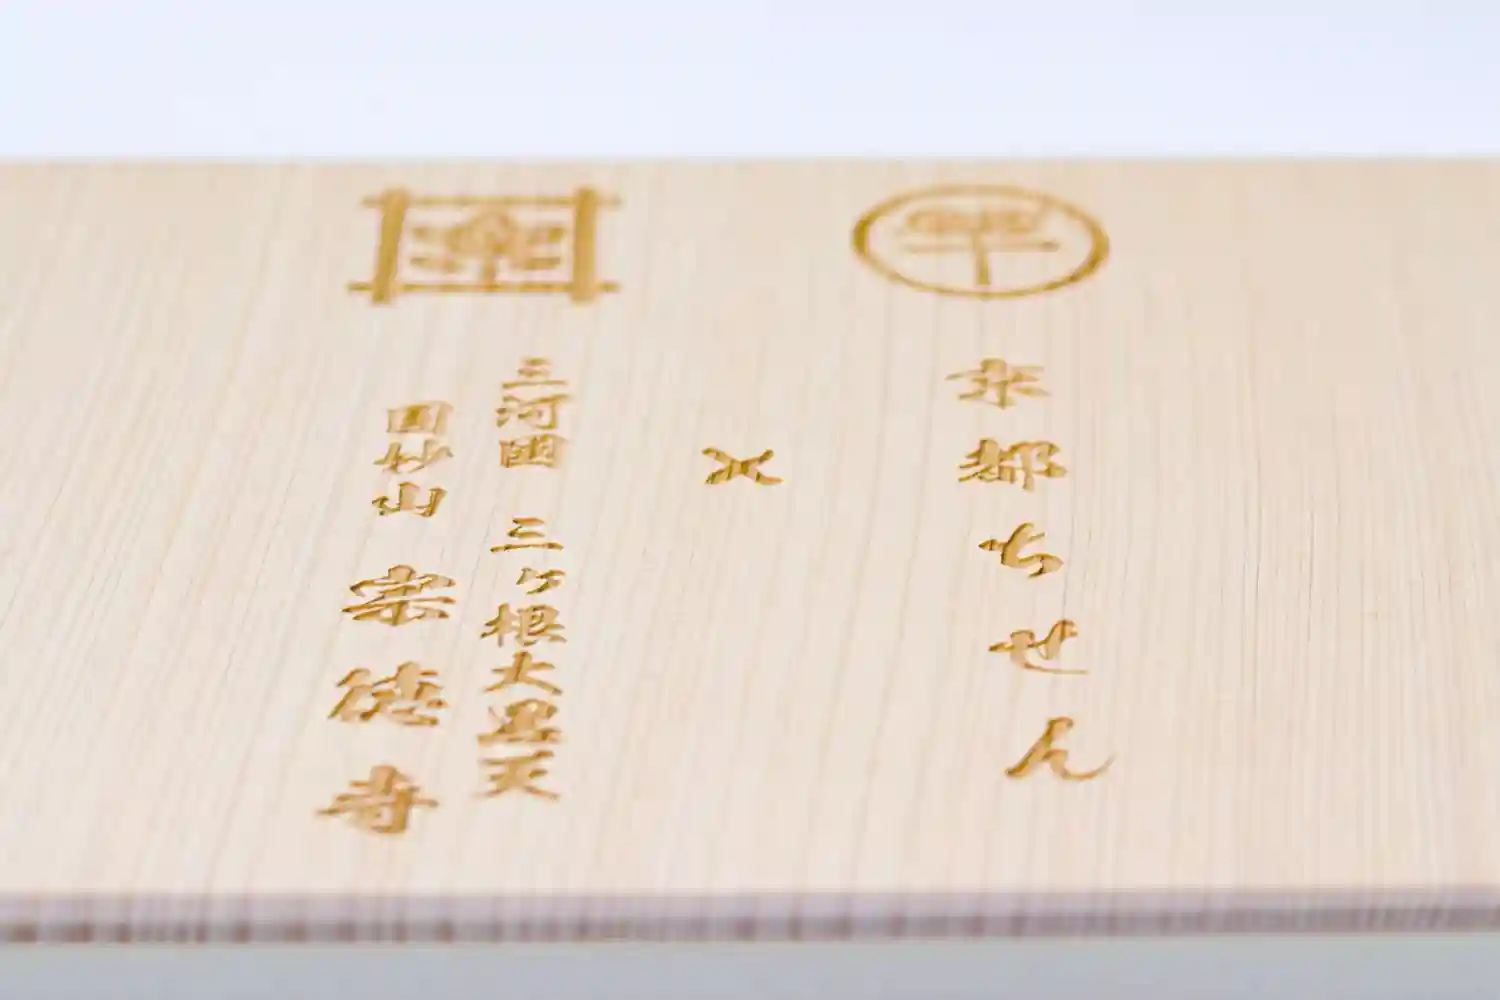 京都ちせん
×
三河國 三ヶ根大黒天
圓妙山 宗徳寺